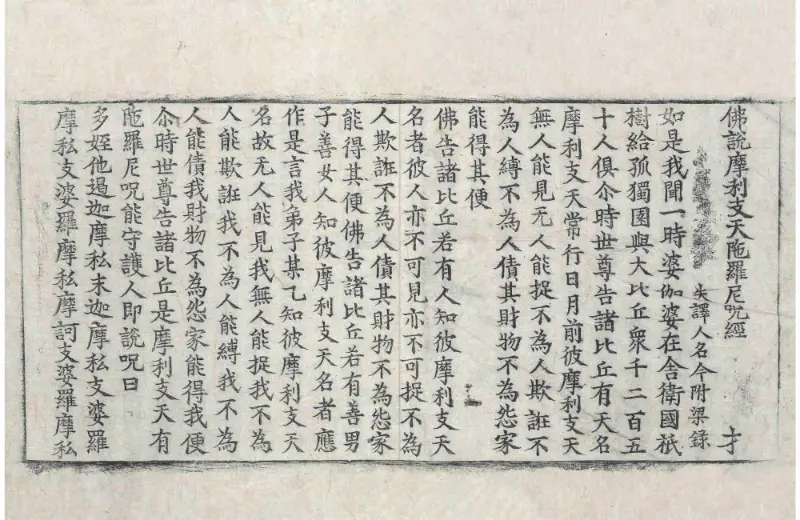 佛說摩利支天陁羅尼呪經　才
失譯人名今附梁錄
如是我聞一時婆伽婆在舍衛國祇
樹給孤獨園與大比丘衆千二百五
十人俱尒時世尊告諸比丘有天名
摩利支天常行日月前彼摩利支天
無人能見无人能捉不為人欺誑不
為人縛不為人債其財物不為怨家
能得其便
佛告諸比丘若有人知彼摩利支天
名者彼人亦不可見亦不可捉不為
人欺誑不為人債其財物不為怨家
能得其便佛告諸比丘若有善男
子善女人知彼摩利支天名者應
作是言我弟子某乙知彼摩利支天
名故无人能見我無人能捉我不為
人能欺誑我不為人能縛我不為
人能債我財物不為怨家能得我便
尒時世尊告諸比丘是摩利支天有
陁羅尼呪能守護人即說呪曰
多姪他遏迦摩私末迦摩私支婆羅
摩私支婆羅摩私摩訶支婆羅摩私